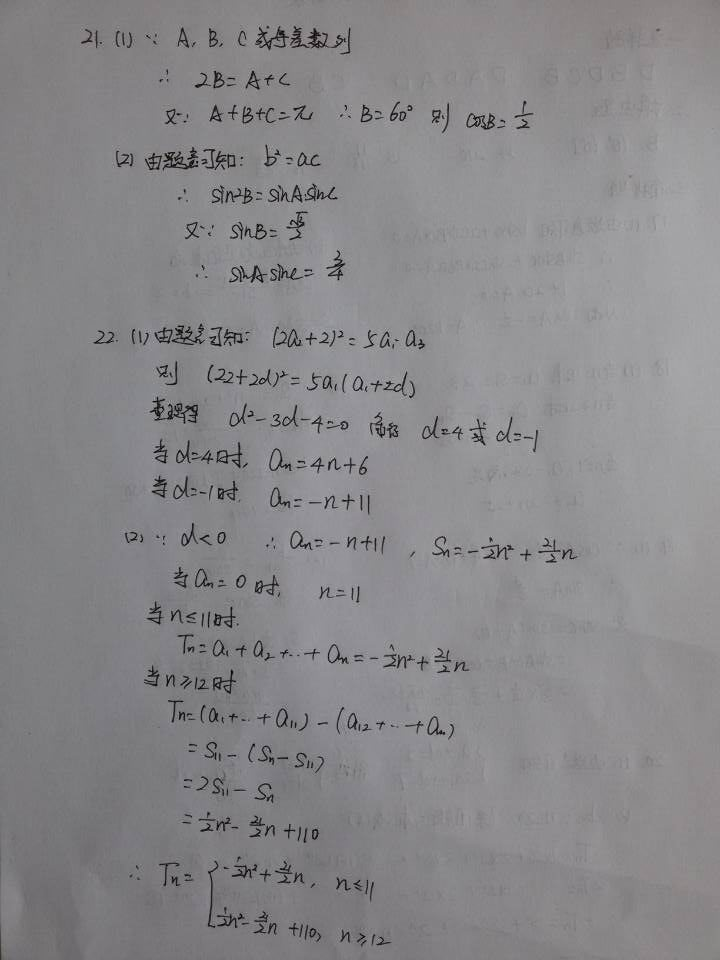 21. (1) ∵ A、B、C 成等差数列
∴ 2B=A+C
又∵ A+B+C=π ∴B=60° 则 cosB=1/2
(2) 由题意可知: b²=ac
∴ sin²B=sinA·sinC
又∵ sinB=√3/2
∴ sinA·sinC=3/4
22. (1)由题意可知: (2a₂+2)²=5a₁·a₃
则 (22+2d)²=5a₁(a₁+2d)
整理得 d²-3d-4=0 解得 d=4 或 d=-1
当d=4时, aₙ=4n+6
当d=-1时, aₙ=-n+11
(2) ∵ d<0 ∴ aₙ=-n+11, Sₙ=-1/2n²+21/2n
当aₙ=0时, n=11
当n≤11时.
Tₙ=a₁+a₂+…+aₙ=-1/2n²+21/2n
当n≥12时
Tₙ=(a₁+…+a₁₁)-(a₁₂+…+aₙ)
=S₁₁-(Sₙ-S₁₁)
=2S₁₁-Sₙ
=1/2n²-21/2n+110
∴ Tₙ={-1/2n²+21/2n, n≤11
1/2n²-21/2n+110, n≥12